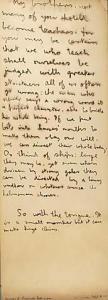 My brothers, not
many of you should
become teachers, for
you may be certain
that we who teach
shall ourselves be
judged with greater
all of us often
go wrong; the man who
never says a wrong word is
able to bridle
his whole being. If we put
bits into horses mouths to
make them obey our will,
we can direct their whole body.
Or think of ships: large
they may be, yet even when
driven by strong gales they
can be directed by a tiny
rudder on whatever course the
helmsman chooses.
So with the tongue. It
is a small member but it can
make huge claims.